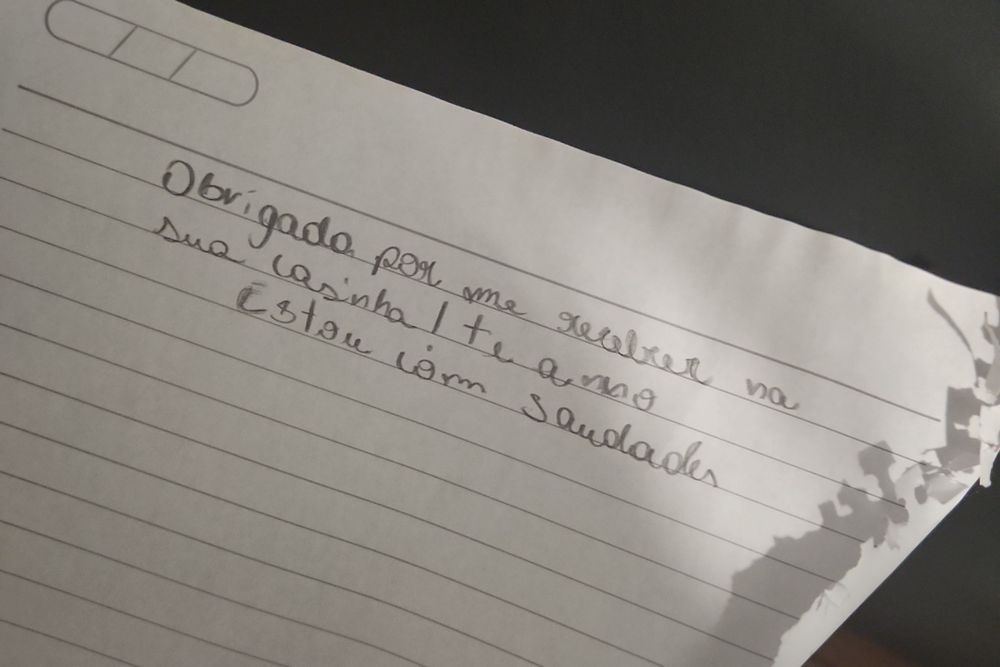 Obrigada por me receber na
sua casinha / te amo
Estou com saudades